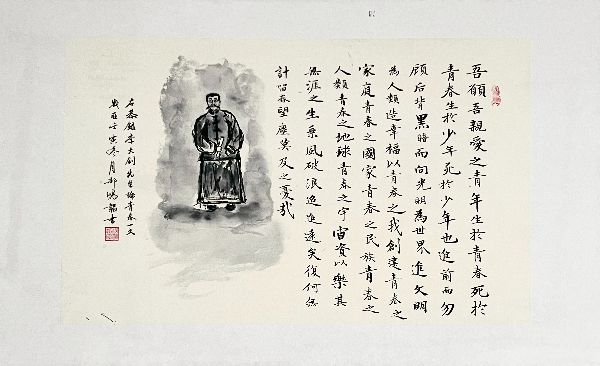 吾願吾親愛之青年生於青春死於
青春生於少年死於少年也進前而勿
顧后背黑暗而向光明為世界進文明
為人類造幸福以青春之我創建青春之
家庭青春之國家青春之民族青春之
人類青春之地球青春之宇宙資以樂其
無涯之生乘風破浪迢迢遠矣復何無
計留春望塵莫及之憂哉
右恭錄李大釗先生青春一文
歲在壬寅冬月書